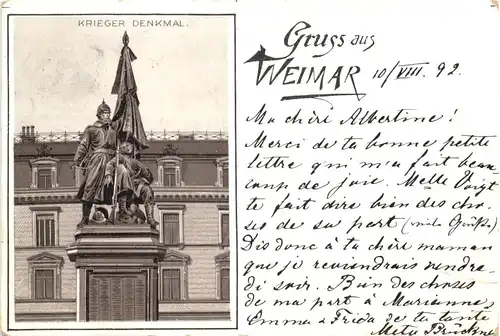 KRIEGER DENKMAL.
Gruss aus
WEIMAR 10/VIII. 92.
Ma chère Albertine!
Merci de ta bonne petite
lettre qui m'a fait beau
coup de joie. Melle Voigt
te fait dire bien des cho-
ses de sa part (viele Grüße)
Dis donc à ta chère maman
que je reviendrais vendre
di soir. Bien des choses
de ma part à Marianne,
Emma & Frida de ta tante
Meta